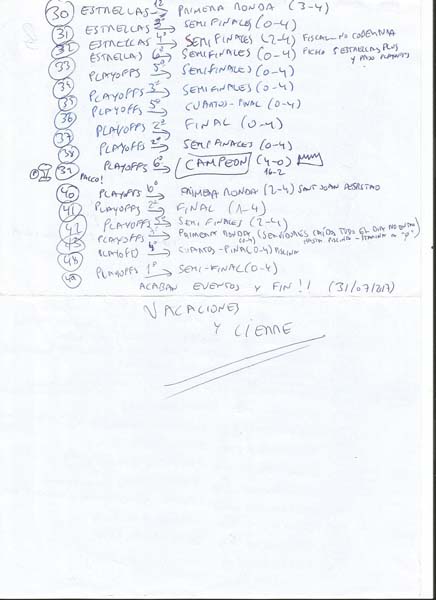 30 ESTRELLAS 12º → PRIMERA RONDA (3-4)
31 ESTRELLAS 3º → SEMIFINALES (0-4)
32 ESTRELLAS 4º → SEMIFINALES (2-4) FISCAL NO CODEMNA
ESTRELLAS 6º → SEMIFINALES (0-4) FICHO 5 ESTRELLAS PLUS
33 PLAYOFFS 5º → SEMIFINALES (0-4) Y PASO PLAYOFFS
34 PLAYOFFS 3º → SEMIFINALES (0-4)
35 PLAYOFFS 5º → CUARTOS-FINAL (0-4)
36 PLAYOFFS 2º → FINAL (0-4)
37 PLAYOFFS 2º → SEMIFINALES (0-4)
38 PLAYOFFS 6º → CAMPEON (4-0)
39 PALCO! 16-2
40 PLAYOFFS 6º → PRIMERA RONDA (2-4) SANT JOAN
41 PLAYOFFS 2º → FINAL (1-4)
42 PLAYOFFS 5º → SEMIFINALES (2-4)
43 PLAYOFFS → PRIMERA RONDA (SERVIDORES CAÍDOS TODO EL DIA
(0-4) HASTA PISCINA
48 PLAYOFF → CUARTOS-FINAL (0-4) PISCINA
49 PLAYOFFS 1º → SEMI-FINAL (0-4)
ACABAN EVENTOS Y FIN!! (31/07/2017)
VACACIONES
Y CIERRE